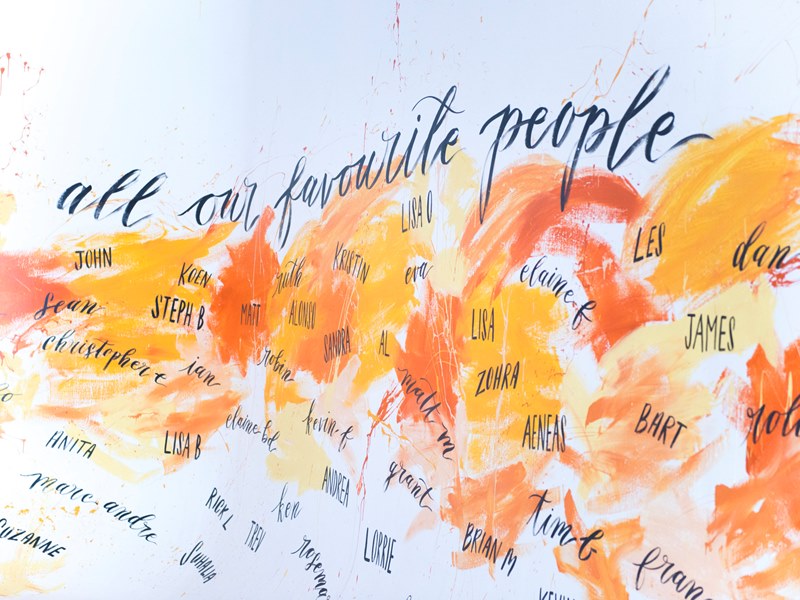 all our favourite people
LISA O
JOHN
KOEN
ruth
KRISTIN
eva
elaine f
LES
dan
sean
STEPH B
MATT
ALONSO
SANDRA
AL
LISA
JAMES
christopher e
ian
robin
matt m
ZOHRA
ANITA
LISA B
elaine bd
kevin f
AENEAS
BART
marc andre
RICK L
ken
ANDREA
grant
SUZANNE
TREV
LORRIE
BRIAN M
tim G